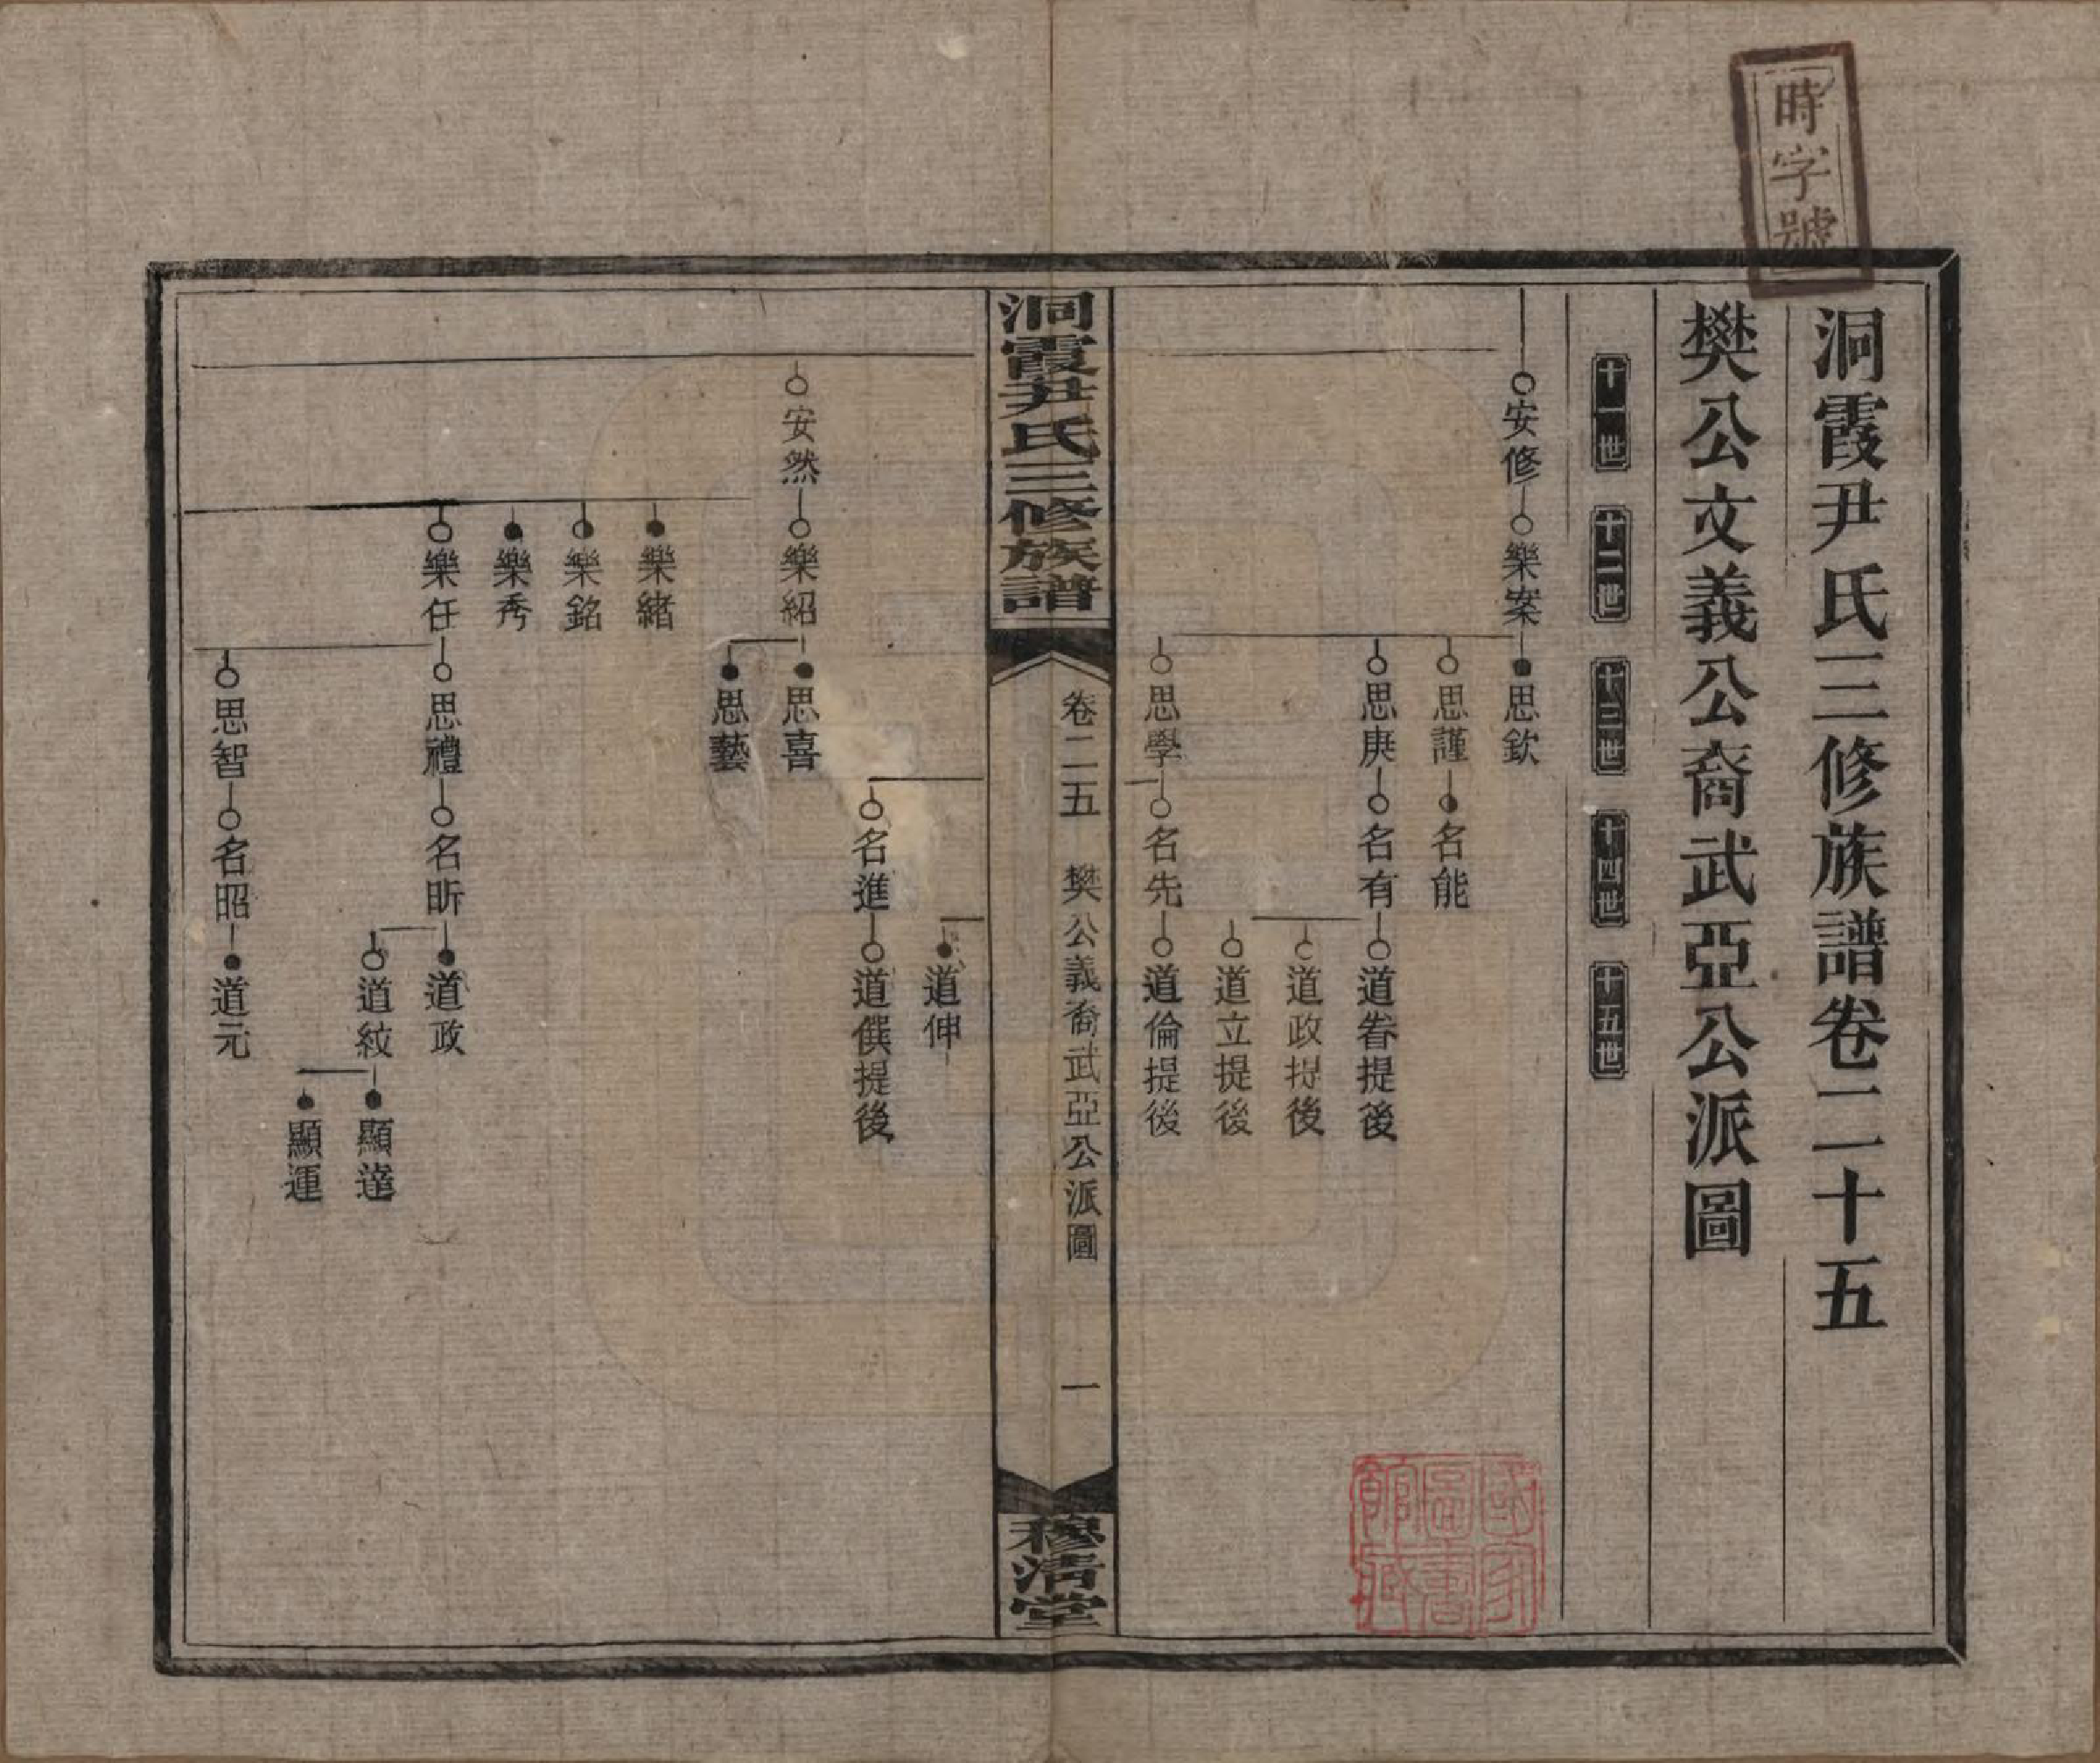 時字號
洞霞尹氏三修族譜卷二十五
樊公文義公裔武亞公派圖
十一世 十二世 十三世 十四世 十五世
安修 樂案 思欽
思謹 名能
思庚 名有 道眷提後
道政提後
道立提後
思學 名先 道倫提後
國家圖書館藏
洞霞尹氏三修族譜 卷二五 樊公義裔武亞公派圖 一 穆清堂
道伸
名進 道僎提後
安然 樂紹 思喜
思藝
樂緒
樂銘
樂秀
樂任 思禮 名昕 道政
道紋 顯達
顯運
思智 名昭 道元